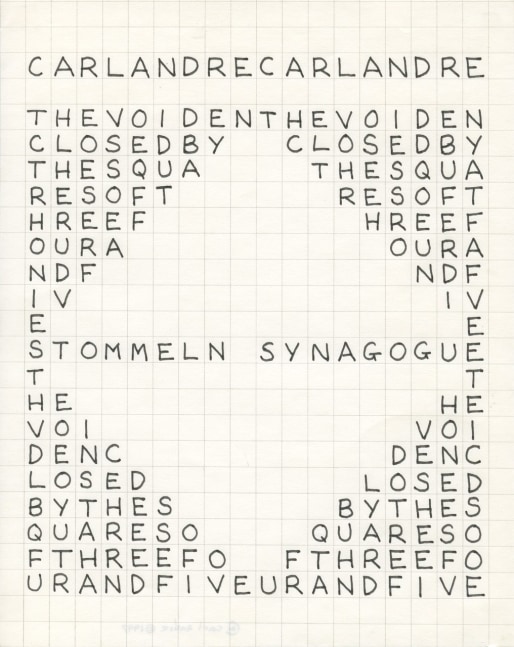 CARLANDRECARLANDRE
THEVOIDENTHEVOIDEN
CLOSEDBY CLOSEDBY
THESQUA THESQUA
RESOFT RESOFT
HREEF HREEF
OURA OURA
NDF NDF
IV IV
E E
STOMMELN SYNAGOGUE
T T
HE HE
VOI VOI
DENC DENC
LOSED LOSED
BYTHES BYTHES
QUARESO QUARESO
FTHREEFO FTHREEFO
URANDFIVEURANDFIVE